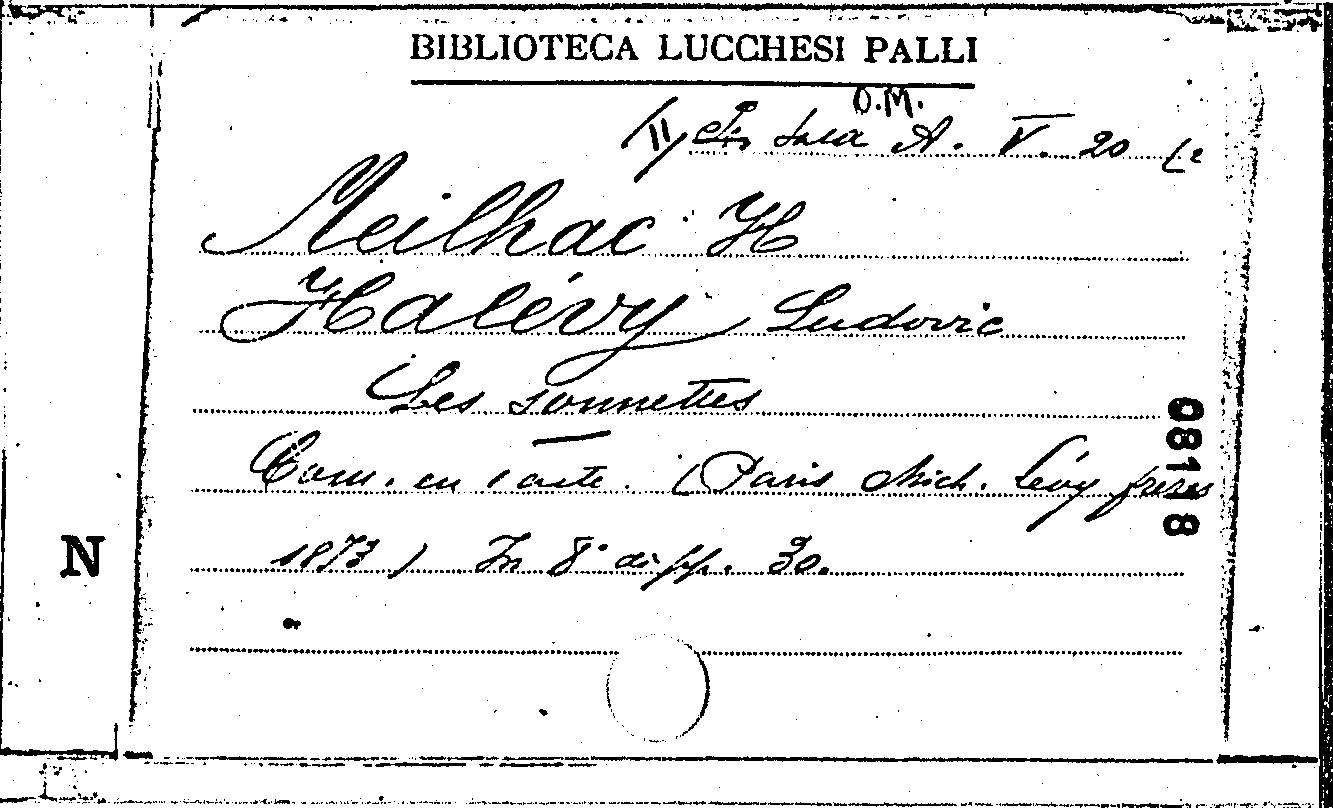 BIBLIOTECA LUCCHESI PALLI
O.M.
Sala A. V. 20 (2
Meilhac H
Halévy Ludovic
Les sonnettes
Com. en 1 acte. (Paris Mich. Lévy frères
1873) In 8° di pp. 30.
08118
N